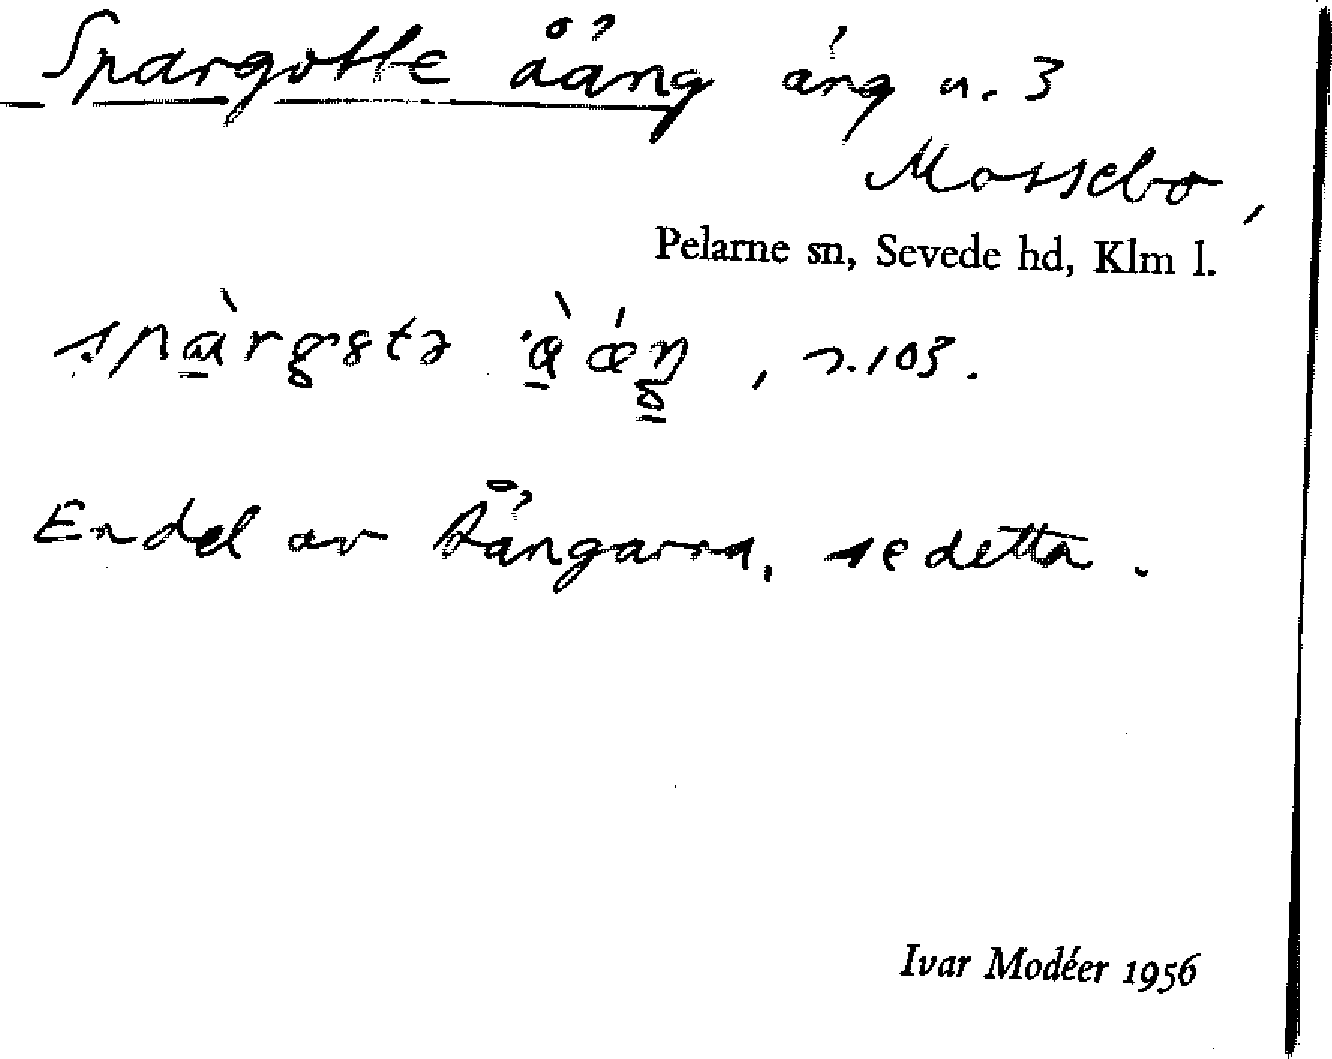 Spargotte åäng äng n. 3
Mossebo,
Pelarne sn, Sevede hd, Klm l.
, s. 103.
En del av Åängarna, se detta.
Ivar Modéer 1956